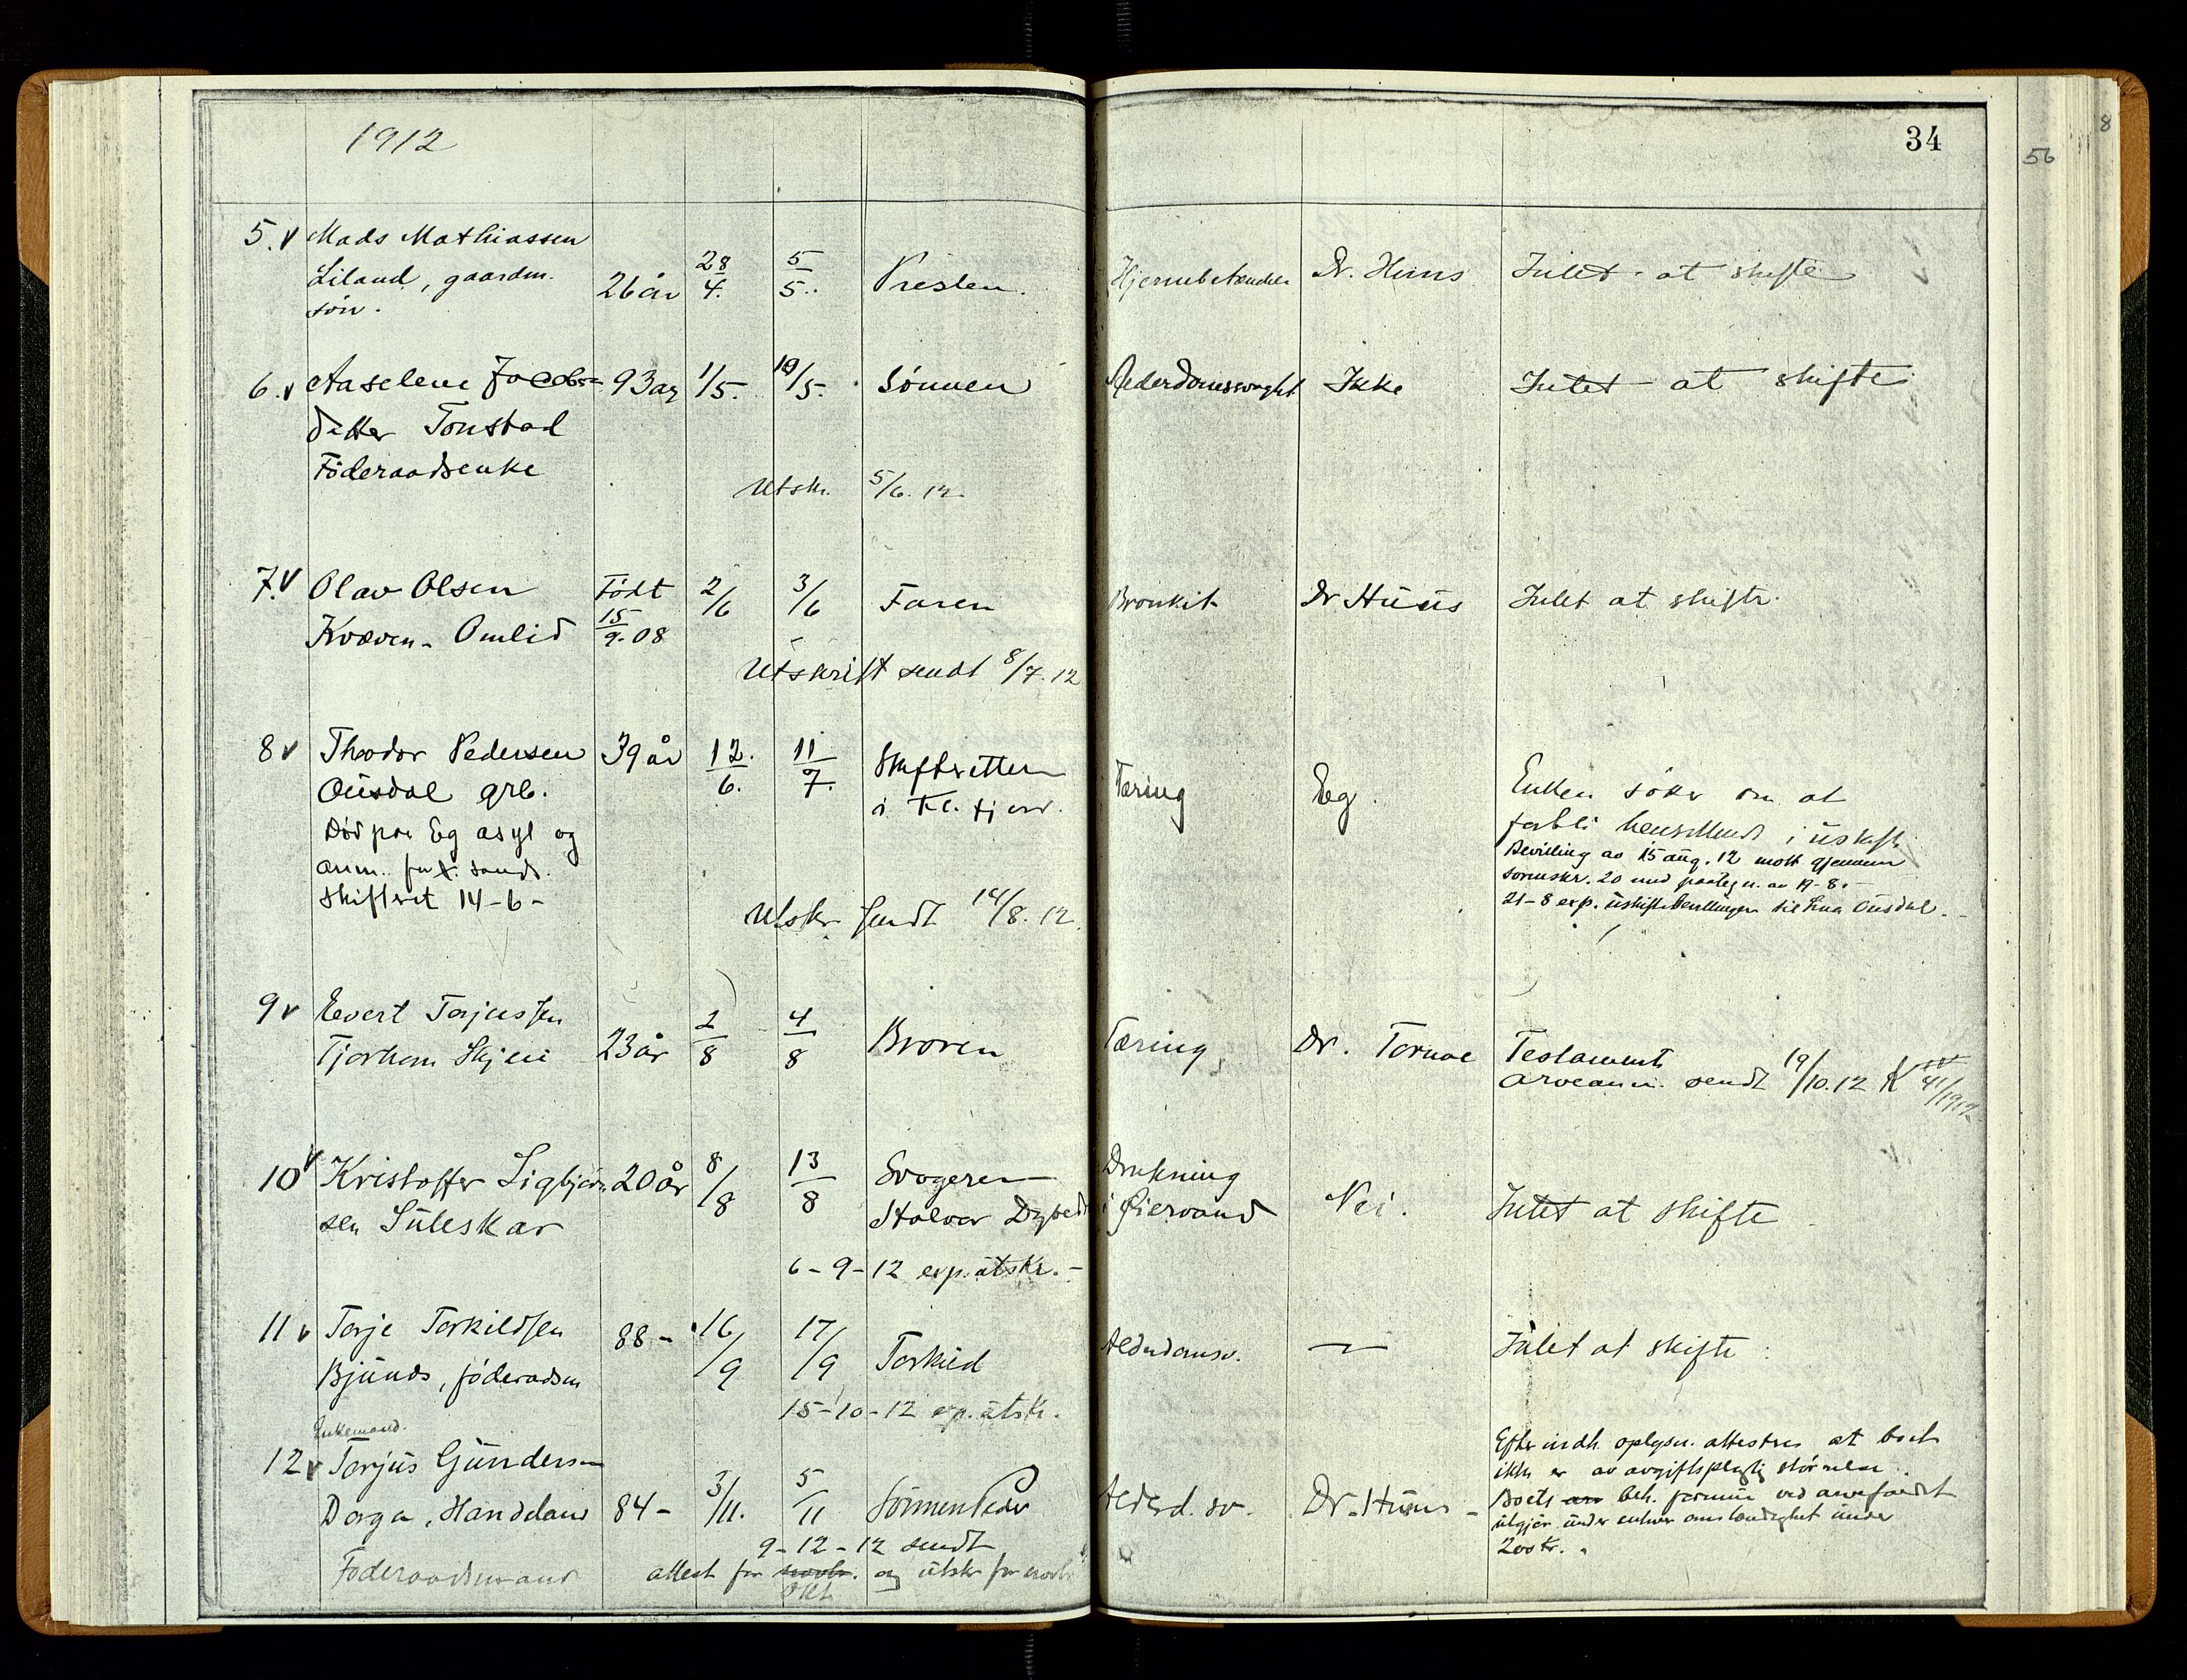 1912
34
56
8
5. v Mads Mathiassen
Liland, gaardm. 26 år 28/4. 5/5. Presten. Hjernebetændelse Dr. Huus Intet at skifte
søn.
6. v Aaselene Jacobs- 93 aar 1/5. 10/5. Sønnen Alderdomssvaghet Ikke Intet at skifte
datter Tonstad
Föderaadsenke
Utskr. 5/6. 12
7. v Olav Olsen Födt 2/6 3/6 Faren Bronkit Dr Huus Intet at skifte.
Kvæven - Omlid 15/9-08
Utskrift sendt 8/7. 12
8 v Theodor Pedersen 39 år 12./6. 11/7. Skifteretten Tæring Eg. Enken söker om at
Ousdal grb. i Kl. fjord. forbli hensittende i uskifte
Död paa Eg asyl og Bevilling av 15 aug. 12 mott. gjennem
anm. fra Kr. sands sorenskr. 20 med paategn. av 19-8.-
skifteret 14-6- 21-8 exp. uskiftebevillingen til Ousdal.-
Utskr. sendt 14/8. 12.
9 v Evert Torjussen
Tjorhom Skjeii 23 år 2/8 4/8 Broren Tæring Dr. Tornoe Testament
arveanm. sendt 19/10. 12 K 41/1912
10 v Kristoffer Sigbjörn- 20 år 8/8 13/8 Svogeren Drukning
sen Suleskar Halvor Dybedal i Öiervand Nei. Intet at skifte
6-9-12 exp. utskr. -
11 v Torje Torkildsen 88 - 16/9 17/9 Torkild Alderdomsv. — Intet at skifte
Bjunds, föderadsm
15-10-12 exp. utskr.
Enkemand.
12 v Torjus Gundersen Efter indh. oplysn. attesteres at boet
ikke er av avgiftspligtig størrelse.
Dorga, Handeland 84 - 3/11. 5/11 Sönnen Peder Alderd. sv. Dr. Huus - Boets beh. formue ved arvefaldet
utgjør under enhver omstændighet under
200 kr.
9-12-12 sendt
Föderaadsmand attest for novbr. og utskr for novbr
okt.